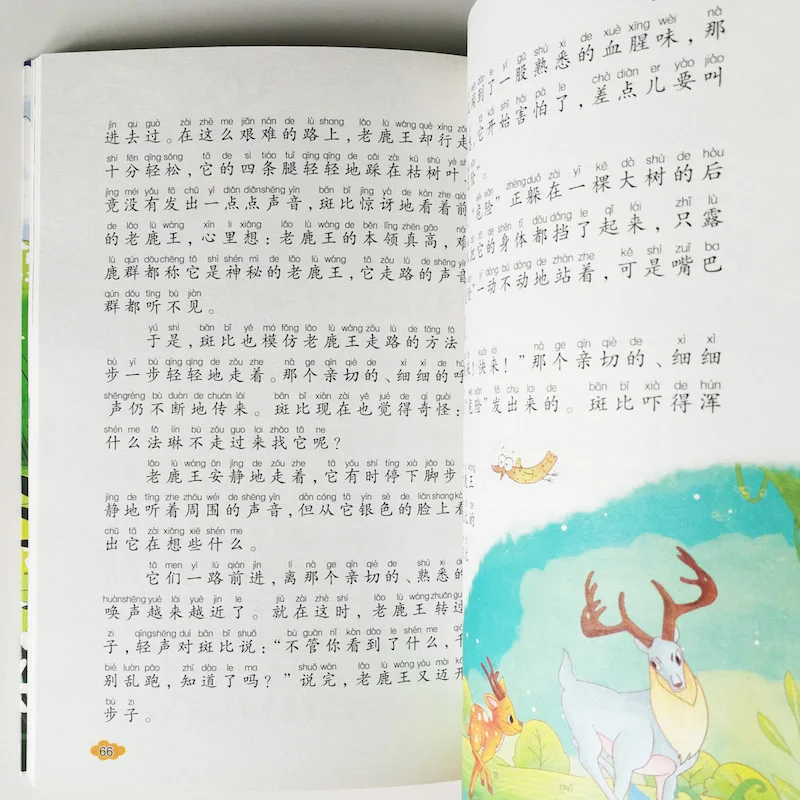 jìn qu guò zài zhè me jiān nán de lù shang lǎo lù wáng què xíng zǒu
进去过。在这么艰难的路上，老鹿王却行走
shí fēn qīng sōng tā de sì tiáo tuǐ qīng qīng de cǎi zài kū shù yè
十分轻松，它的四条腿轻轻地踩在枯树叶
jìng méi yǒu fā chū yì diǎn diǎn shēng yīn bān bǐ jīng yà de kàn zhe qián
竟没有发出一点点声音，斑比惊讶地看着前
de lǎo lù wáng xīn li xiǎng lǎo lù wáng de běn lǐng zhēn gāo
的老鹿王，心里想：老鹿王的本领真高，难
lù qún dōu chēng tā shì shén mì de lǎo lù wáng tā zǒu lù de shēng yīn
鹿群都称它是神秘的老鹿王，它走路的声音
qún dōu tīng bú jiàn
群都听不见。
yú shì bān bǐ yě mó fǎng lǎo lù wáng zǒu lù de fāng fǎ
于是，斑比也模仿老鹿王走路的方法
bù yí bù qīng qīng de zǒu zhe nà ge qīn qiè de xì xì de
步一步轻轻地走着。那个亲切的、细细的呼
shēng réng bú duàn de chuán lái bān bǐ xiàn zài yě jué de qí guài
声仍不断地传来。斑比现在也觉得奇怪：
shén me fǎ lín bù zǒu guo lai zhǎo tā ne
什么法琳不走过来找它呢？
lǎo lù wáng ān jìng de zǒu zhe tā yǒu shí tíng xià jiǎo bù
老鹿王安静地走着，它有时停下脚步
jìng de tīng zhe zhōu wéi de shēng yīn dàn cóng tā yín sè de liǎn shang
静地听着周围的声音，但从它银色的脸上看
chū tā zài xiǎng xiē shén me
出它在想些什么。
tā men yí lù qián jìn lí nà ge qīn qiè de shú xi de
它们一路前进，离那个亲切的、熟悉的
huàn shēng yuè lái yuè jìn le jiù zài zhè shí lǎo lù wáng zhuǎn guò
唤声越来越近了。就在这时，老鹿王转过
zi qīng shēng duì bān bǐ shuō bù guǎn nǐ kàn dào le shén me
子，轻声对斑比说：“不管你看到了什么，千
bié luàn pǎo zhī dào le ma shuō wán lǎo lù wáng yòu mài kāi
别乱跑，知道了吗？”说完，老鹿王又迈开
bù zi
步子。
66
le yì gǔ shú xi de xuè xīng wèi nà
到了一股熟悉的血腥味，那
tā kāi shǐ hài pà le chà diǎn er yào jiào
它开始害怕了，差点儿要叫
险”。
zhèng duǒ zài yì kē dà shù de hòu
危险”正躲在一棵大树的后
tā de shēn tǐ dōu dǎng le qǐ lái zhǐ lù
它的身体都挡了起来，只露
yí dòng bú dòng de zhàn zhe kě shì zuǐ ba
一动不动地站着，可是嘴巴
kuài lái nà ge qīn qiè de xì xì
！快来！”那个亲切的、细细
fā chu lai de bān bǐ xià de hún
危险”发出来的。斑比吓得浑
王
的